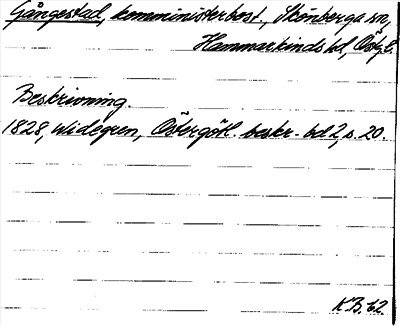 Gångestad, komministerbost., Skönberga sn,
Hammarkinds hd, Östg.l.
Beskrivning.
1828, Widegren, Östergötl. beskr. bd 2, s. 20.
K.B. 62.